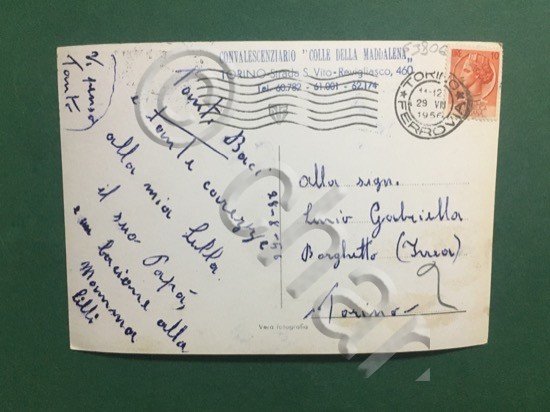 CONVALESCENZIARIO "COLLE DELLA MADDALENA"
TORINO Strada S. Vito - Revigliasco, 460
Tel. 60.782 - 61.001 - 82.174
63806
TORINO
11-12
29 VIII
1956
FERROVIA
10
Vi penso
tanto
Tanti Baci
e tante carezze
alla mia Lella
il suo Papà,
e un bacione alla
Mammina
Lilli
28-8-56
alla sign.
Gabriella
Borghetto (Ivrea)
Torino
Vera fotografia
© Char